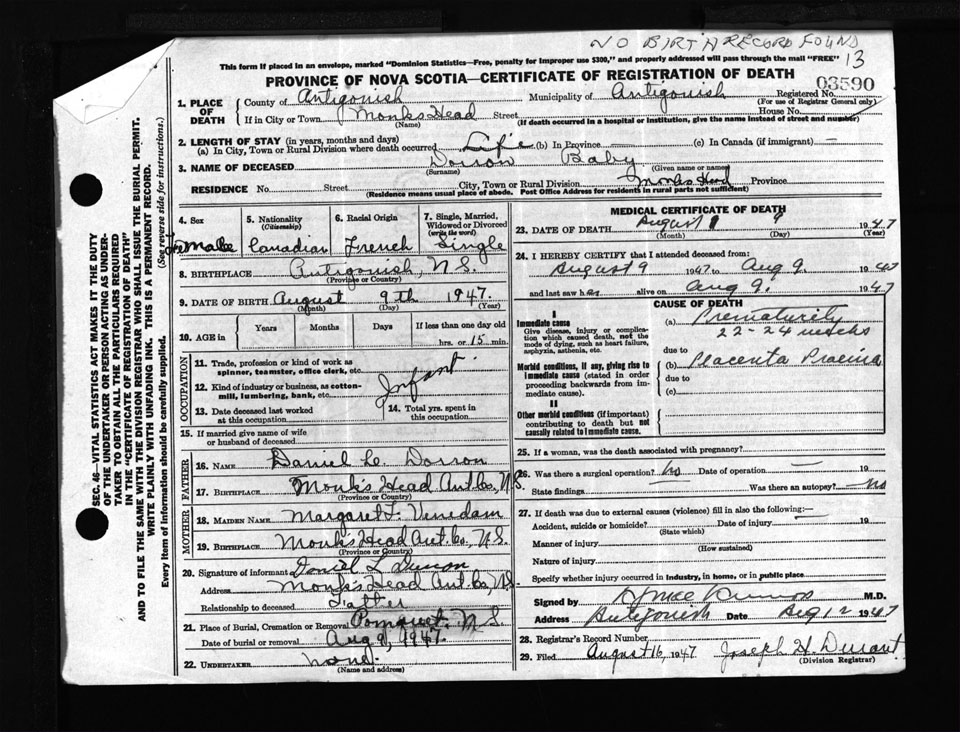 NO BIRTH RECORD FOUND
13
This form if placed in an envelope, marked "Dominion Statistics—Free, penalty for improper use $300," and properly addressed will pass through the mail "FREE"
PROVINCE OF NOVA SCOTIA—CERTIFICATE OF REGISTRATION OF DEATH
03590
1. PLACE OF DEATH
County of Antigonish Municipality of Antigonish Registered No.
(For use of Registrar General only)
If in City or Town Monks Head Street House No.
(Name) (If death occurred in a hospital or institution, give the name instead of street and number)
2. LENGTH OF STAY (in years, months and days)
(a) In City, Town or Rural Division where death occurred Life (b) In Province — (c) In Canada (if immigrant) —
3. NAME OF DECEASED Dorron Baby
(Surname) (Given name or names)
RESIDENCE No. Street City, Town or Rural Division Monks Head Province
(Residence means usual place of abode. Post Office Address for residents in rural parts not sufficient)
4. Sex Female
5. Nationality (Citizenship) Canadian
6. Racial Origin French
7. Single, Married, Widowed or Divorced (write the word) Single
8. BIRTHPLACE Antigonish, N.S.
(Province or Country)
9. DATE OF BIRTH August 9th 1947
(Month) (Day) (Year)
10. AGE in Years Months Days If less than one day old
hrs. or 15 min.
OCCUPATION
11. Trade, profession or kind of work as spinner, teamster, office clerk, etc.
12. Kind of industry or business, as cotton-mill, lumbering, bank, etc.
Infant
13. Date deceased last worked at this occupation
14. Total yrs. spent in this occupation
15. If married give name of wife or husband of deceased
FATHER
16. NAME Daniel L. Dorron
17. BIRTHPLACE Monks Head Ant. Co, N.S.
(Province or Country)
MOTHER
18. MAIDEN NAME Margaret F.
19. BIRTHPLACE Monks Head Ant. Co, N.S.
(Province or Country)
20. Signature of informant Daniel L
Address Monk's Head Ant. Co, N.S.
Relationship to deceased Father
21. Place of Burial, Cremation or Removal Pomquet, N.S.
Date of burial or removal Aug 9, 1947
22. UNDERTAKER none
(Name and address)
MEDICAL CERTIFICATE OF DEATH
23. DATE OF DEATH August 9 1947
(Month) (Day) (Year)
24. I HEREBY CERTIFY that I attended deceased from:
August 9 1947 to Aug 9. 1947
and last saw her alive on Aug 9. 1947
CAUSE OF DEATH
I
Immediate cause
Give disease, injury or complication which caused death, not the mode of dying, such as heart failure, asphyxia, asthenia, etc.
(a) Prematurity
22-24 weeks
due to
Morbid conditions, if any, giving rise to immediate cause (stated in order proceeding backwards from immediate cause).
(b) Placenta Praevia
due to
(c)
II
Other morbid conditions (if important) contributing to death but not causally related to immediate cause.
25. If a woman, was the death associated with pregnancy? —
26. Was there a surgical operation? No Date of operation — 19
State findings — Was there an autopsy? No
27. If death was due to external causes (violence) fill in also the following:—
Accident, suicide or homicide? Date of injury 19
(State which)
Manner of injury
(How sustained)
Nature of injury
Specify whether injury occurred in industry, in home, or in public place
Signed by M.D.
Address Antigonish Date Aug 12 1947
28. Registrar's Record Number
29. Filed August 16, 1947 Joseph H. Durant
(Division Registrar)
SEC. 46—VITAL STATISTICS ACT MAKES IT THE DUTY
OF THE UNDERTAKER OR PERSON ACTING AS UNDERTAKER
TO OBTAIN ALL THE PARTICULARS REQUIRED
IN THE "CERTIFICATE OF REGISTRATION OF DEATH"
AND TO FILE THE SAME WITH THE DIVISION REGISTRAR WHO SHALL ISSUE THE BURIAL PERMIT.
WRITE PLAINLY WITH UNFADING INK. THIS IS A PERMANENT RECORD.
Every item of information should be carefully supplied. (See reverse side for instructions.)